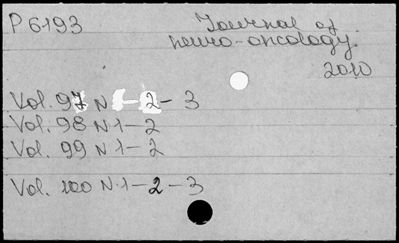 P 6193 Journal of
neuro-oncology.
2010
Vol. 97 N 1-2-3
Vol. 98 N 1-2
Vol. 99 N 1-2
Vol. 100 N.1-2-3